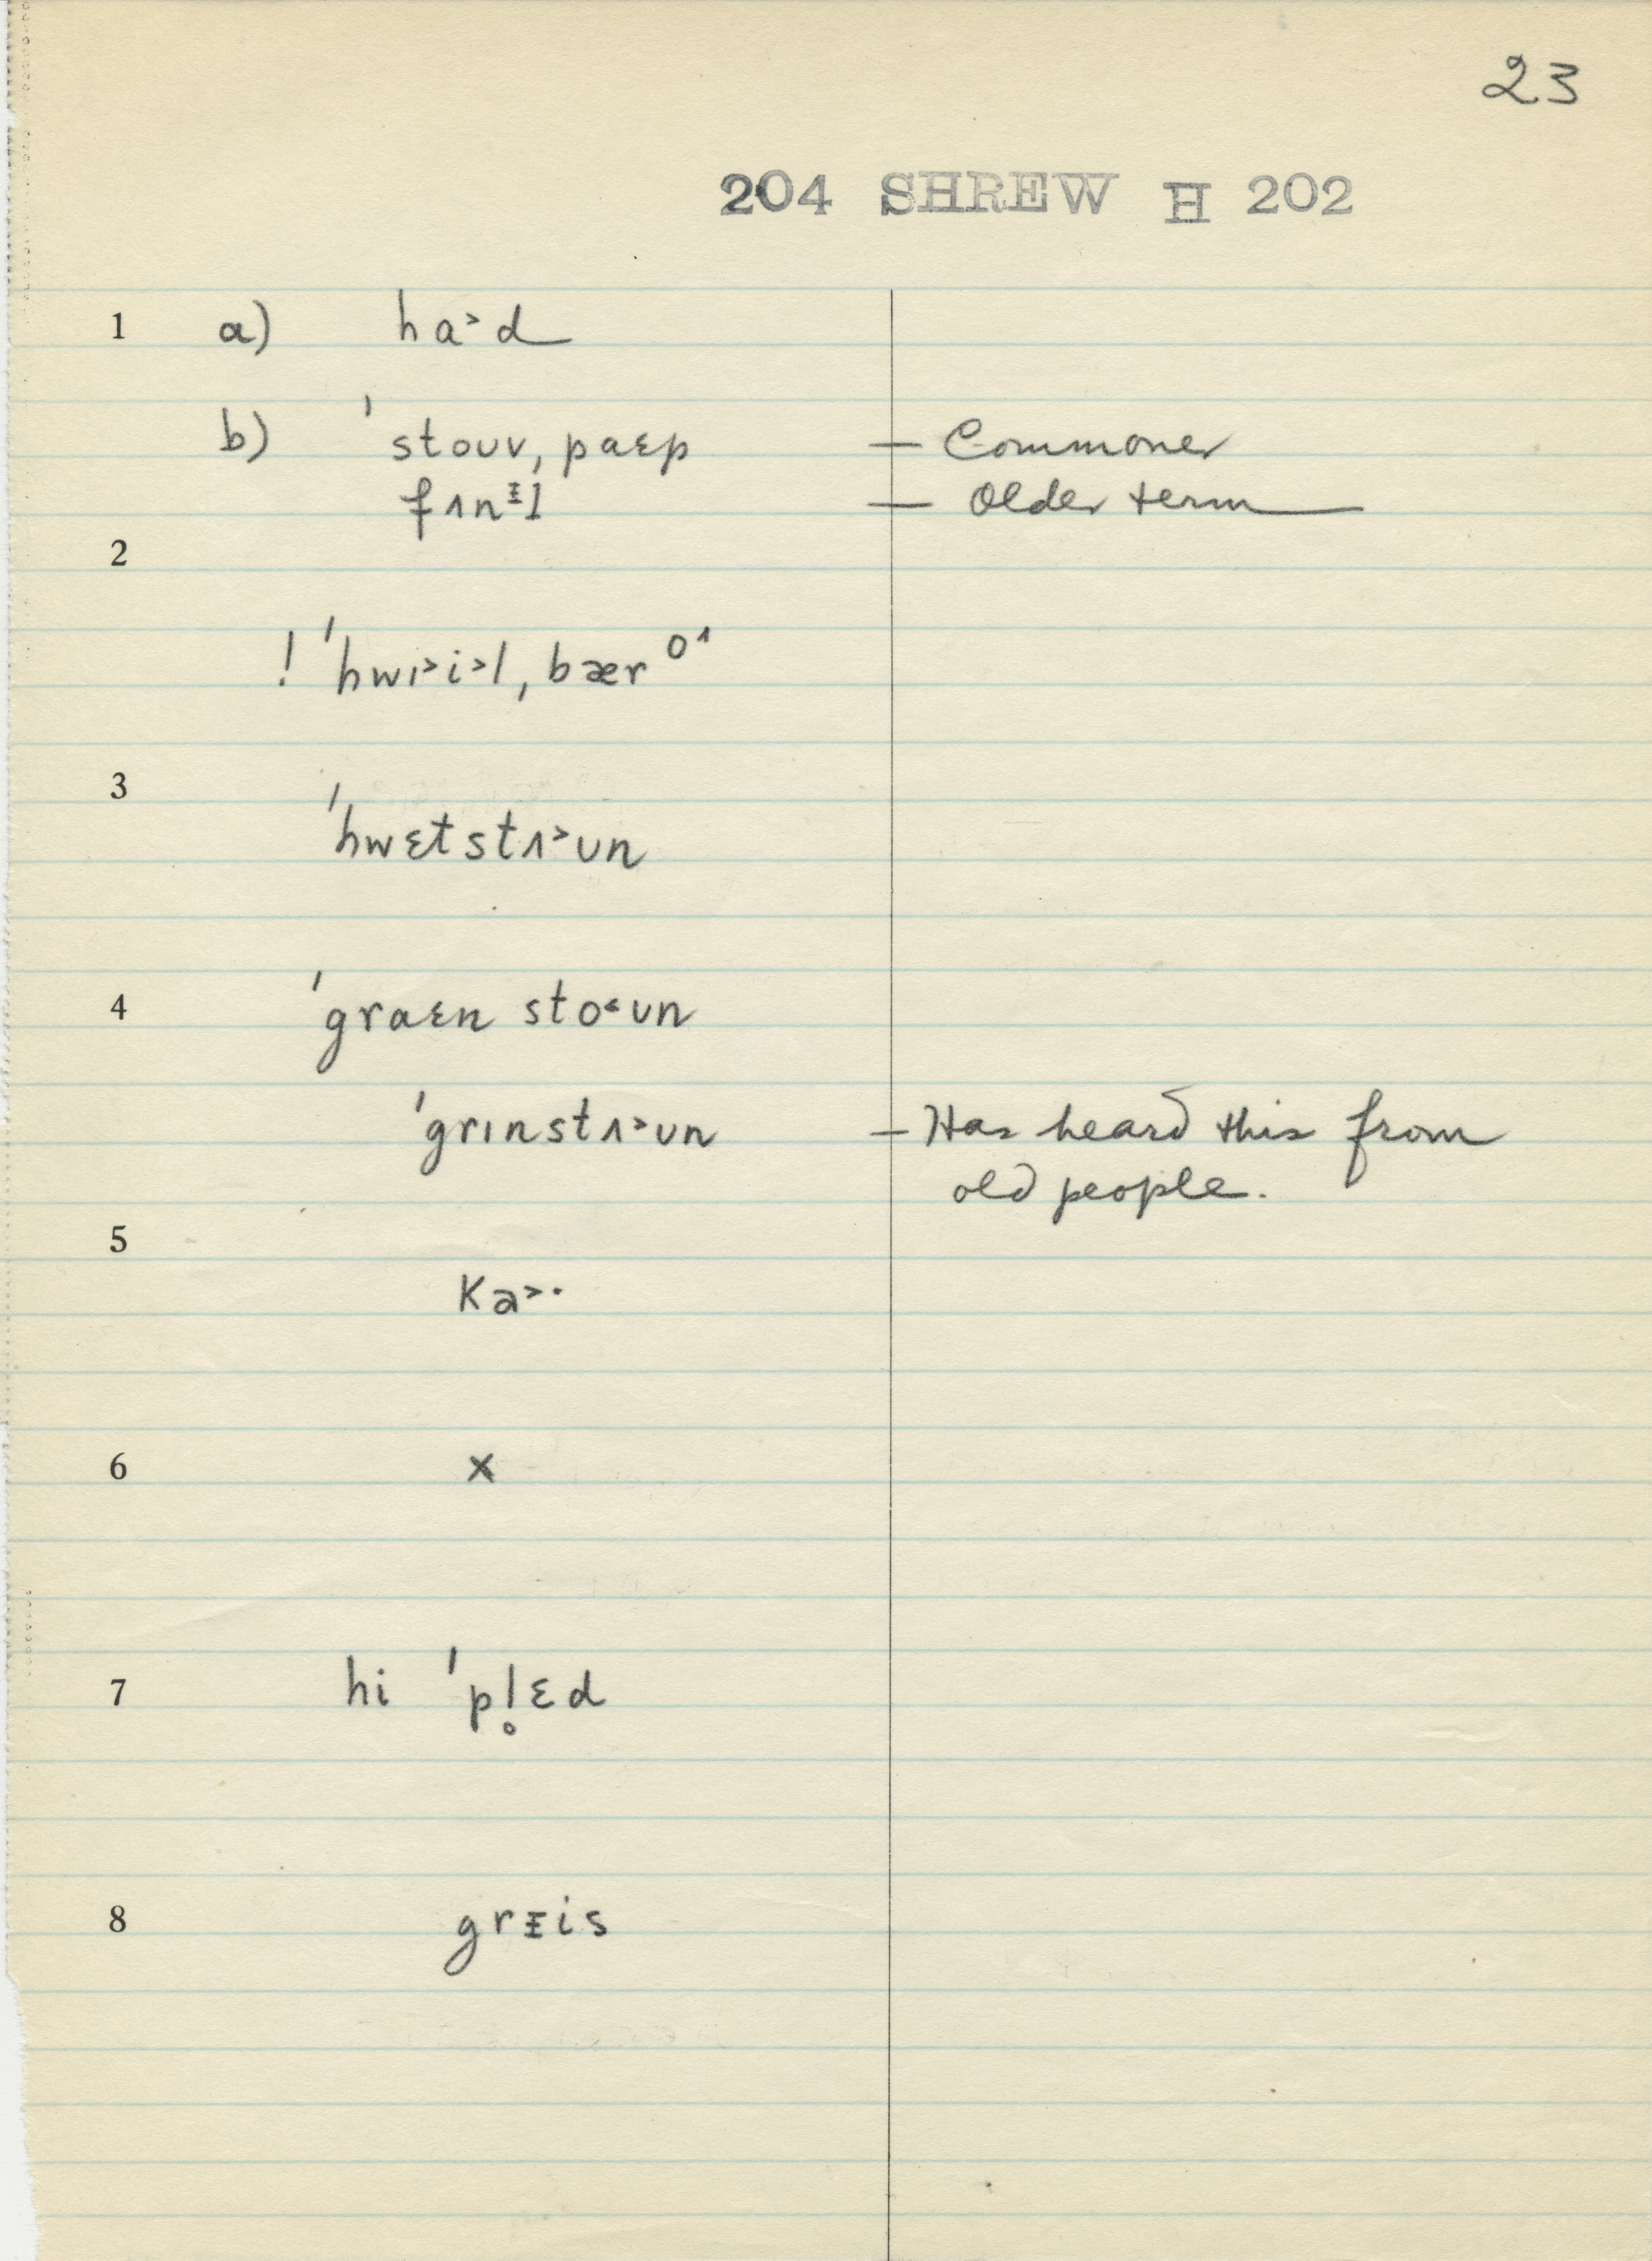 23
204 SHREW H 202
1 a) ha˃d
b) ˈstouv, paɛp — Commoner
fʌnᵻl — Older term
2
! ˈhwɪ˃i˃l, bær oʌ
3
ˈhwɛtstʌ˃ʊn
4 ˈgraɛn sto˂ʊn
ˈgrɪnstʌ˃ʊn — Has heard this from
old people.
5
Ka˃·
6 x
7 hi ˈpl̥ɛd
8 grᵻis